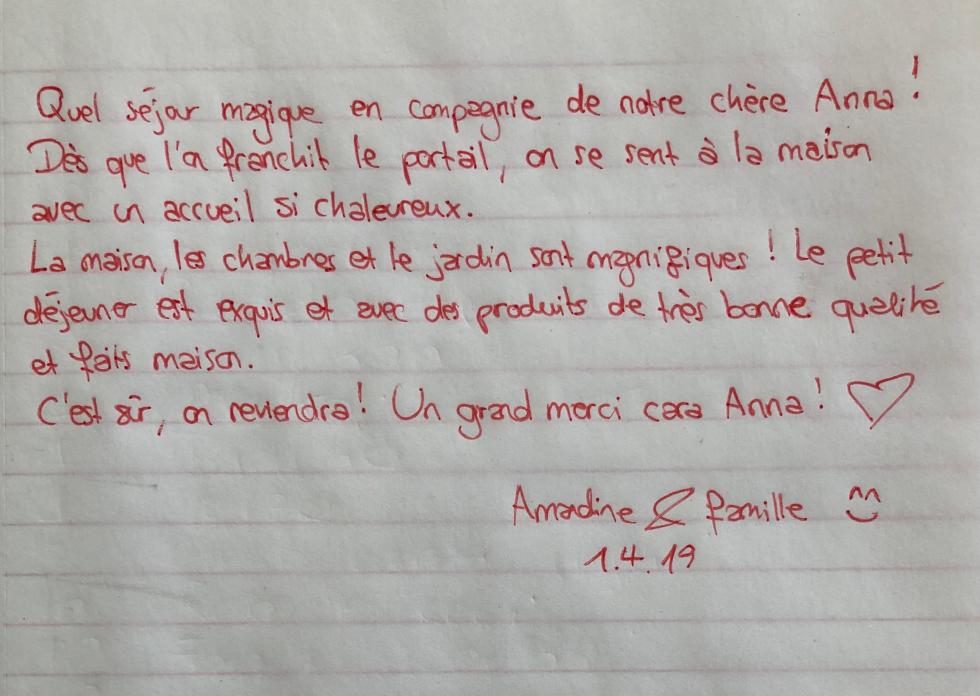 Quel séjour magique en compagnie de notre chère Anna !
Dès que l'on franchit le portail, on se sent à la maison
avec un accueil si chaleureux.
La maison, les chambres et le jardin sont magnifiques ! Le petit
déjeuner est exquis et avec des produits de très bonne qualité
et faits maison.
C'est sûr, on reviendra ! Un grand merci cara Anna ! ♡
Amandine & famille ^^
1.4.19